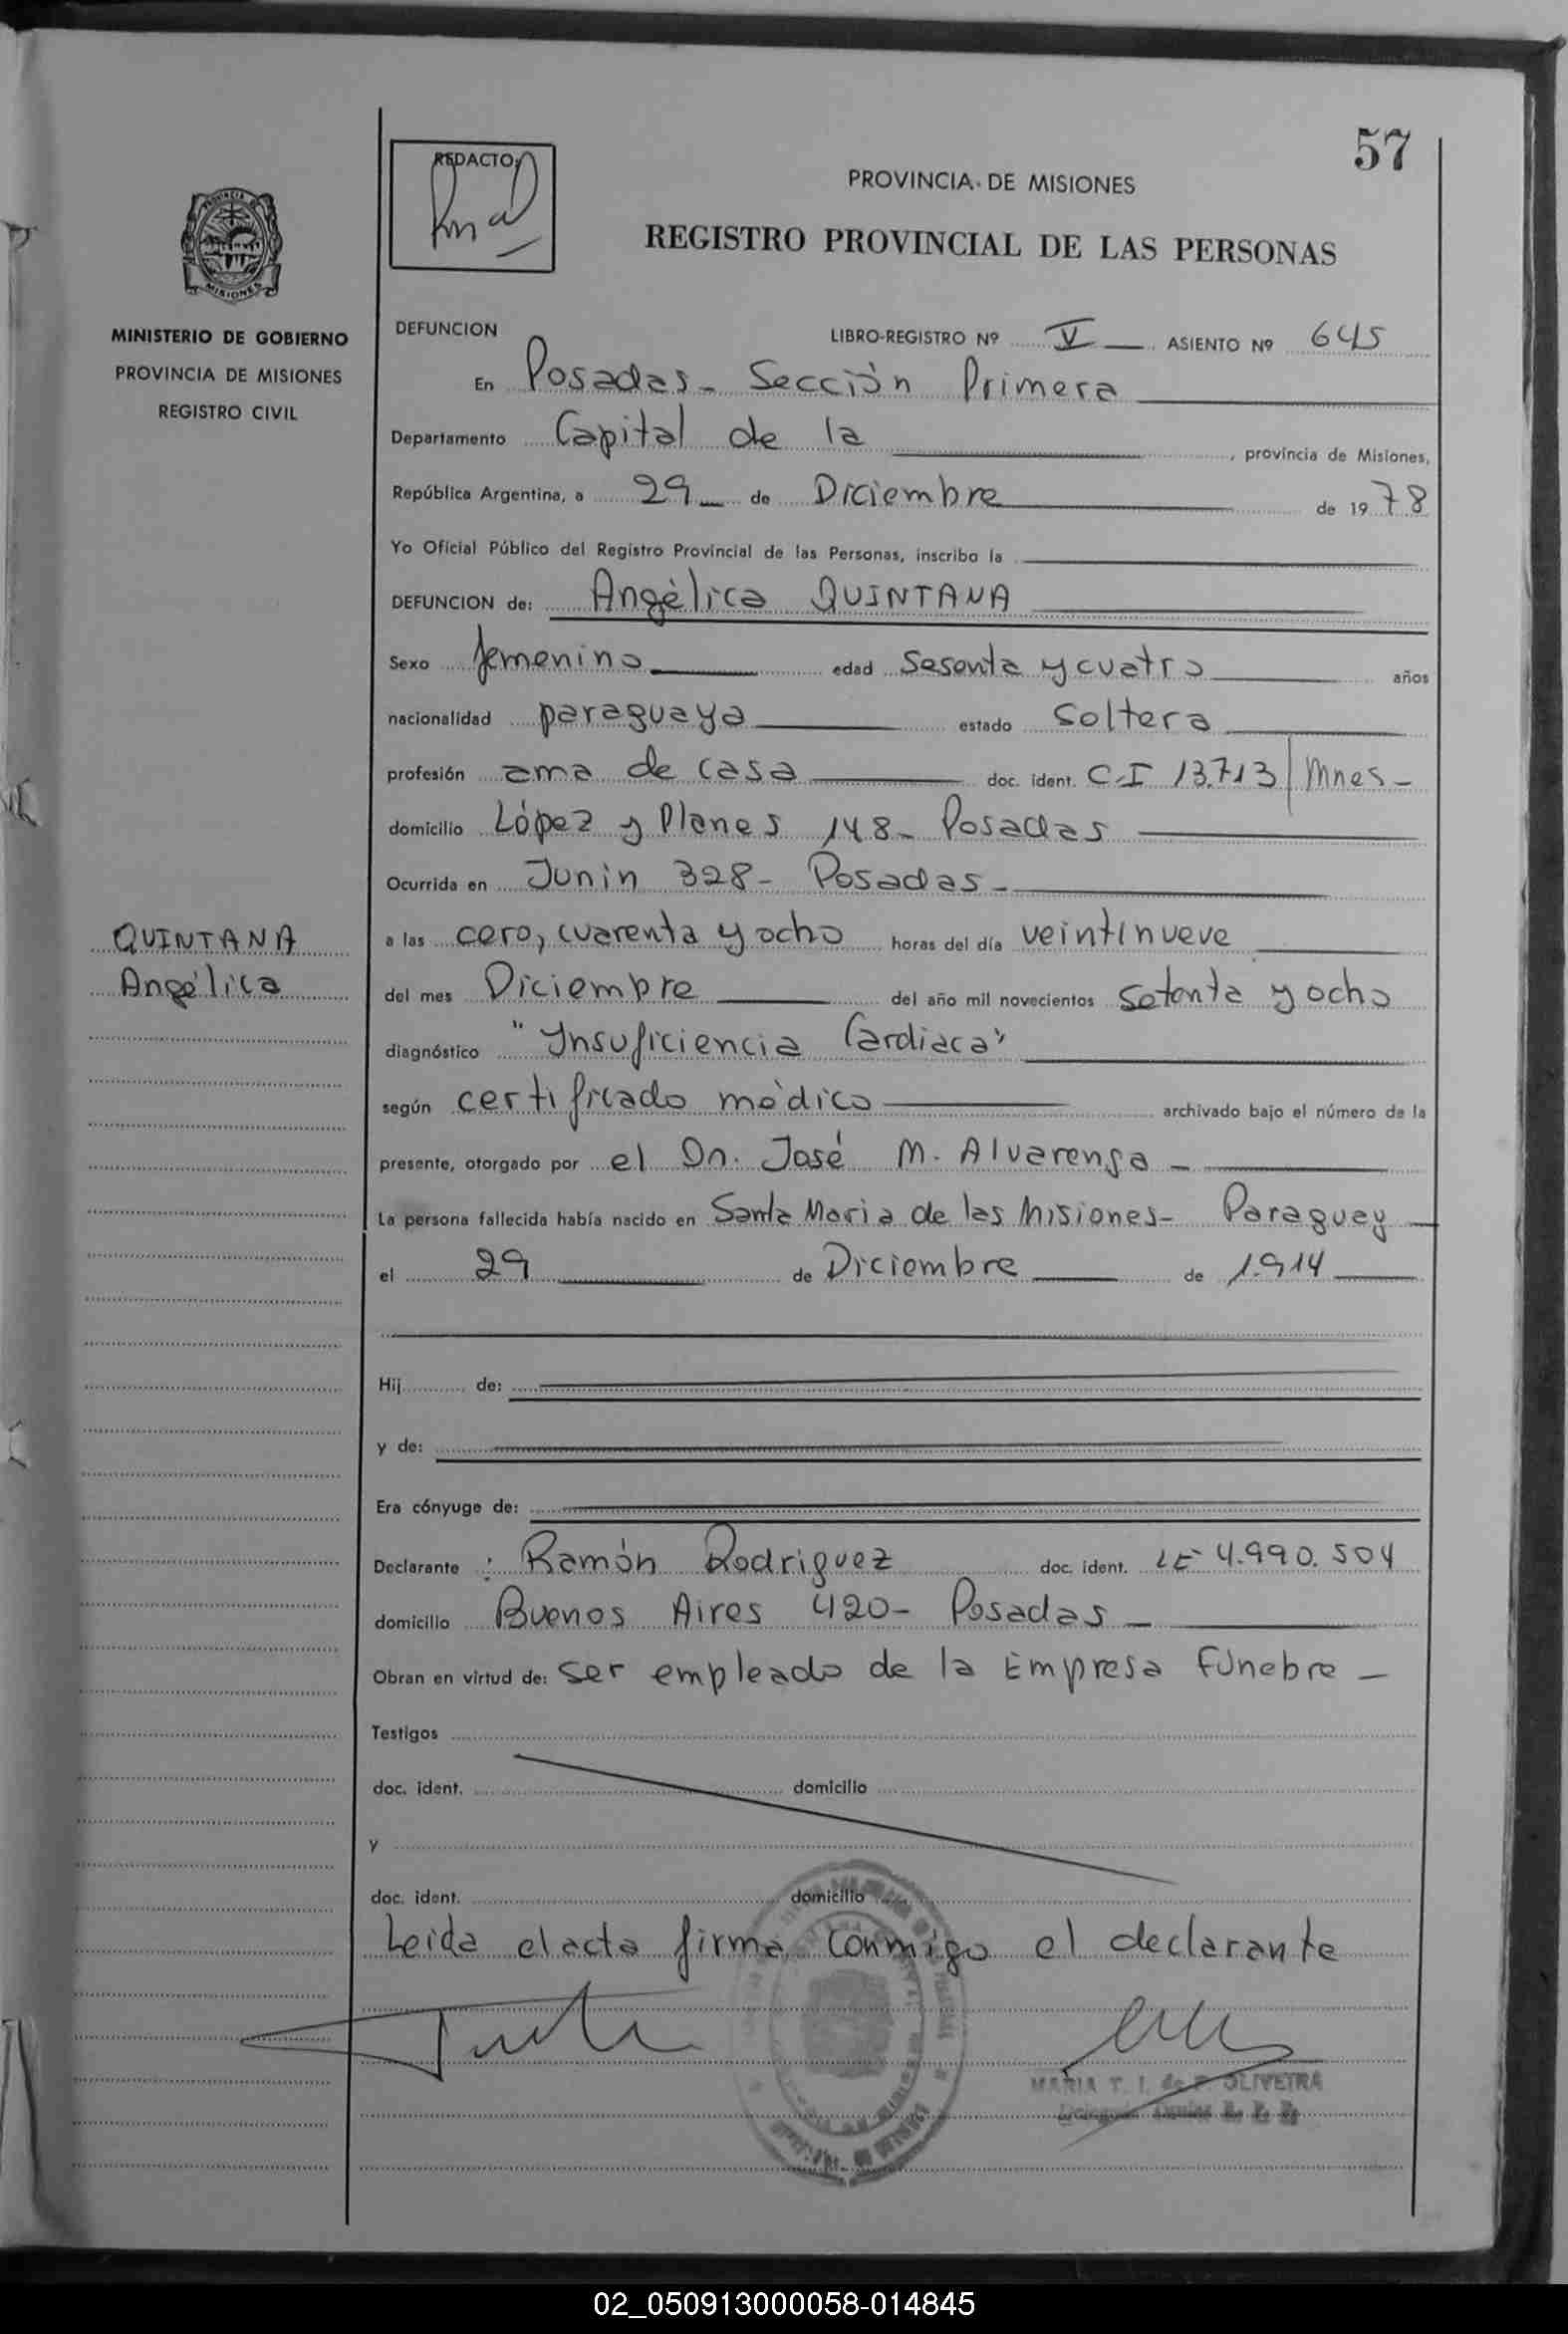 57
REDACTO:
PROVINCIA DE MISIONES
REGISTRO PROVINCIAL DE LAS PERSONAS
PROVINCIA DE
MISIONES
MINISTERIO DE GOBIERNO
PROVINCIA DE MISIONES
REGISTRO CIVIL
DEFUNCION LIBRO-REGISTRO Nº V ASIENTO Nº 645
En Posadas - Sección Primera
Departamento Capital de la , provincia de Misiones,
República Argentina, a 29 de Diciembre de 1978
Yo Oficial Público del Registro Provincial de las Personas, inscribo la
DEFUNCION de: Angélica QUINTANA
Sexo femenino edad Sesenta y cuatro años
nacionalidad paraguaya estado Soltera
profesión ama de casa doc. ident. C.I 13.713/Mnes-
domicilio López y Planes 148- Posadas
Ocurrida en Junín 328- Posadas-
a las cero, cuarenta y ocho horas del día veintinueve
del mes Diciembre del año mil novecientos setenta y ocho
diagnóstico "Insuficiencia Cardiaca"
según certificado médico archivado bajo el número de la
presente, otorgado por el Dr. José M. Alvarenga -
La persona fallecida había nacido en Santa Maria de las Misiones- Paraguay
el 29 de Diciembre de 1.914
Hij de:
y de:
Era cónyuge de:
Declarante : Ramón Rodriguez doc. ident. LE 4.990.504
domicilio Buenos Aires 420- Posadas -
Obran en virtud de: ser empleado de la Empresa Fúnebre -
Testigos
doc. ident. domicilio
y
doc. ident. domicilio
Leida el acta firma conmigo el declarante
MARIA T. I. de F. OLIVEIRA
QUINTANA
Angélica
02_050913000058-014845